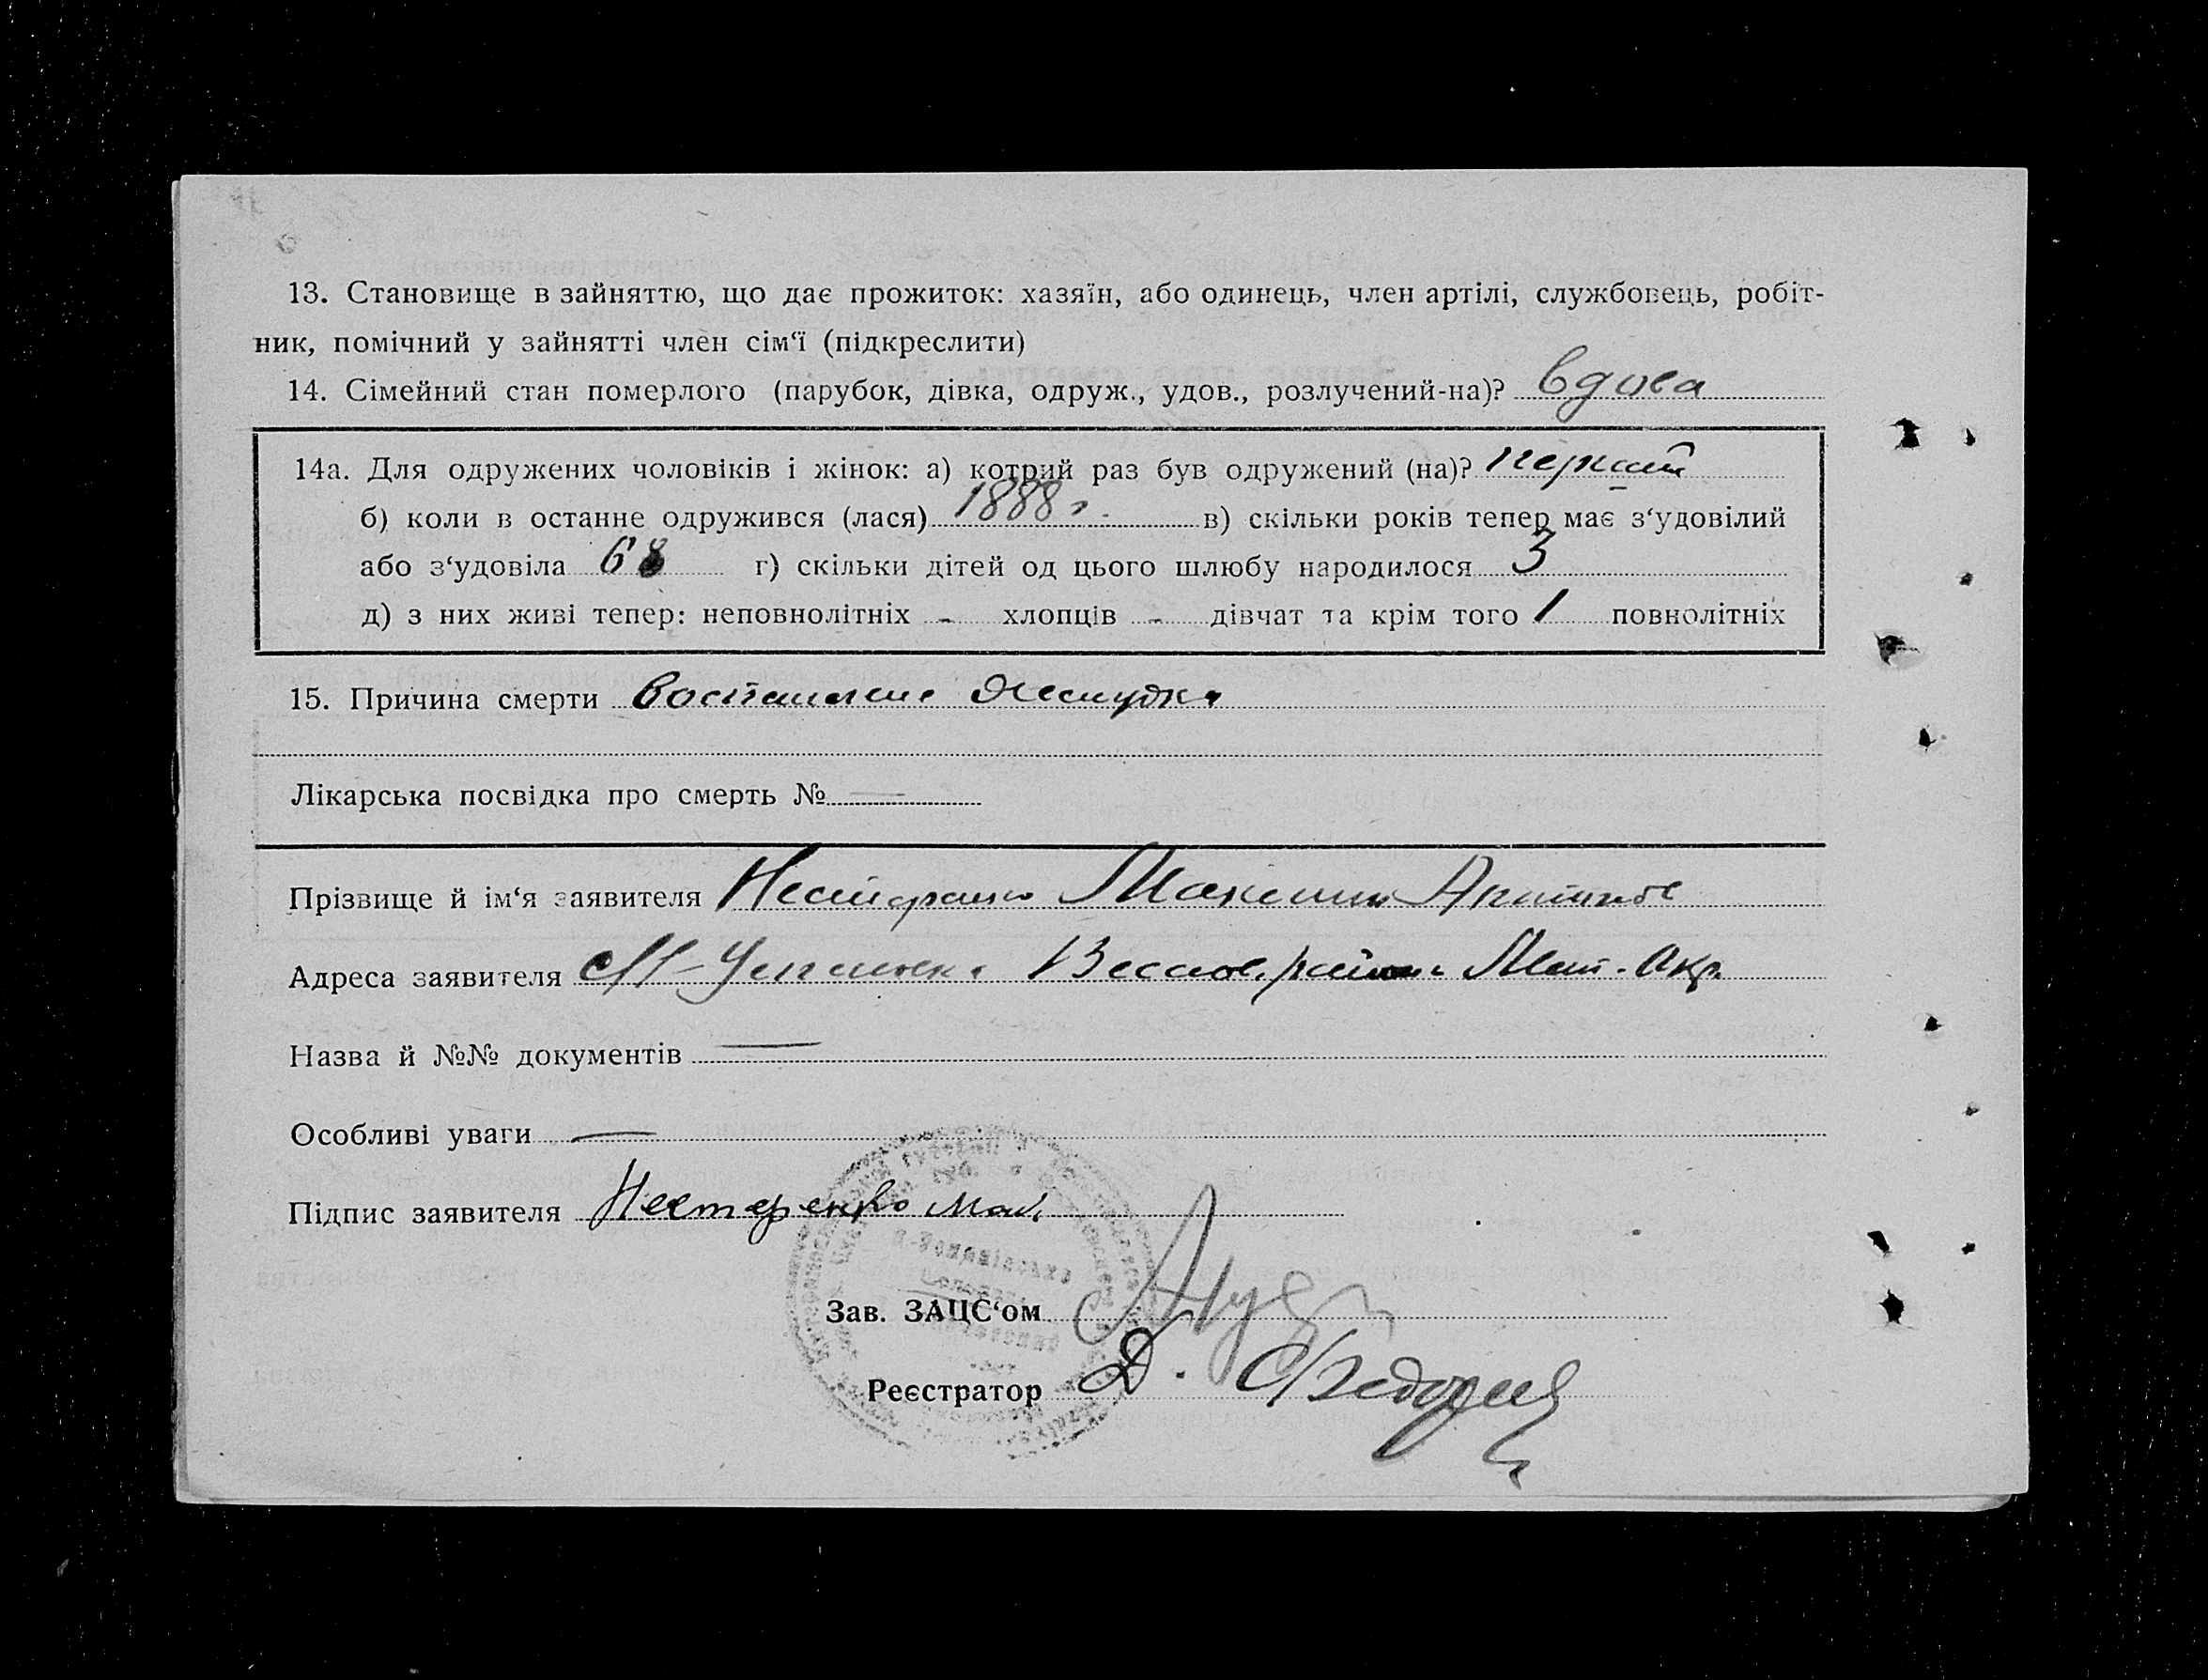 13. Становище в зайняттю, що дає прожиток: хазяїн, або одинець, член артілі, службовець, робіт-
ник, помічний у зайнятті член сім‘ї (підкреслити)
14. Сімейний стан померлого (парубок, дівка, одруж., удов., розлучений-на)? вдова
14а. Для одружених чоловіків і жінок: а) котрий раз був одружений (на)? перший
б) коли в останнє одружився (лася) 1888 г. в) скільки років тепер має з‘удовілий
або з‘удовіла 68 г) скільки дітей од цього шлюбу народилося 3
д) з них живі тепер: неповнолітніх - хлопців - дівчат та крім того 1 повнолітніх
15. Причина смерти воспаление желудка
Лікарська посвідка про смерть № —
Прізвище й ім‘я заявителя Нестеренко Максим
Адреса заявителя Весело. района Мелит. Окр.
Назва й №№ документів —
Особливі уваги —
Підпис заявителя Нестеренко Мак.
Зав. ЗАЦС‘ом
Реєстратор Д.